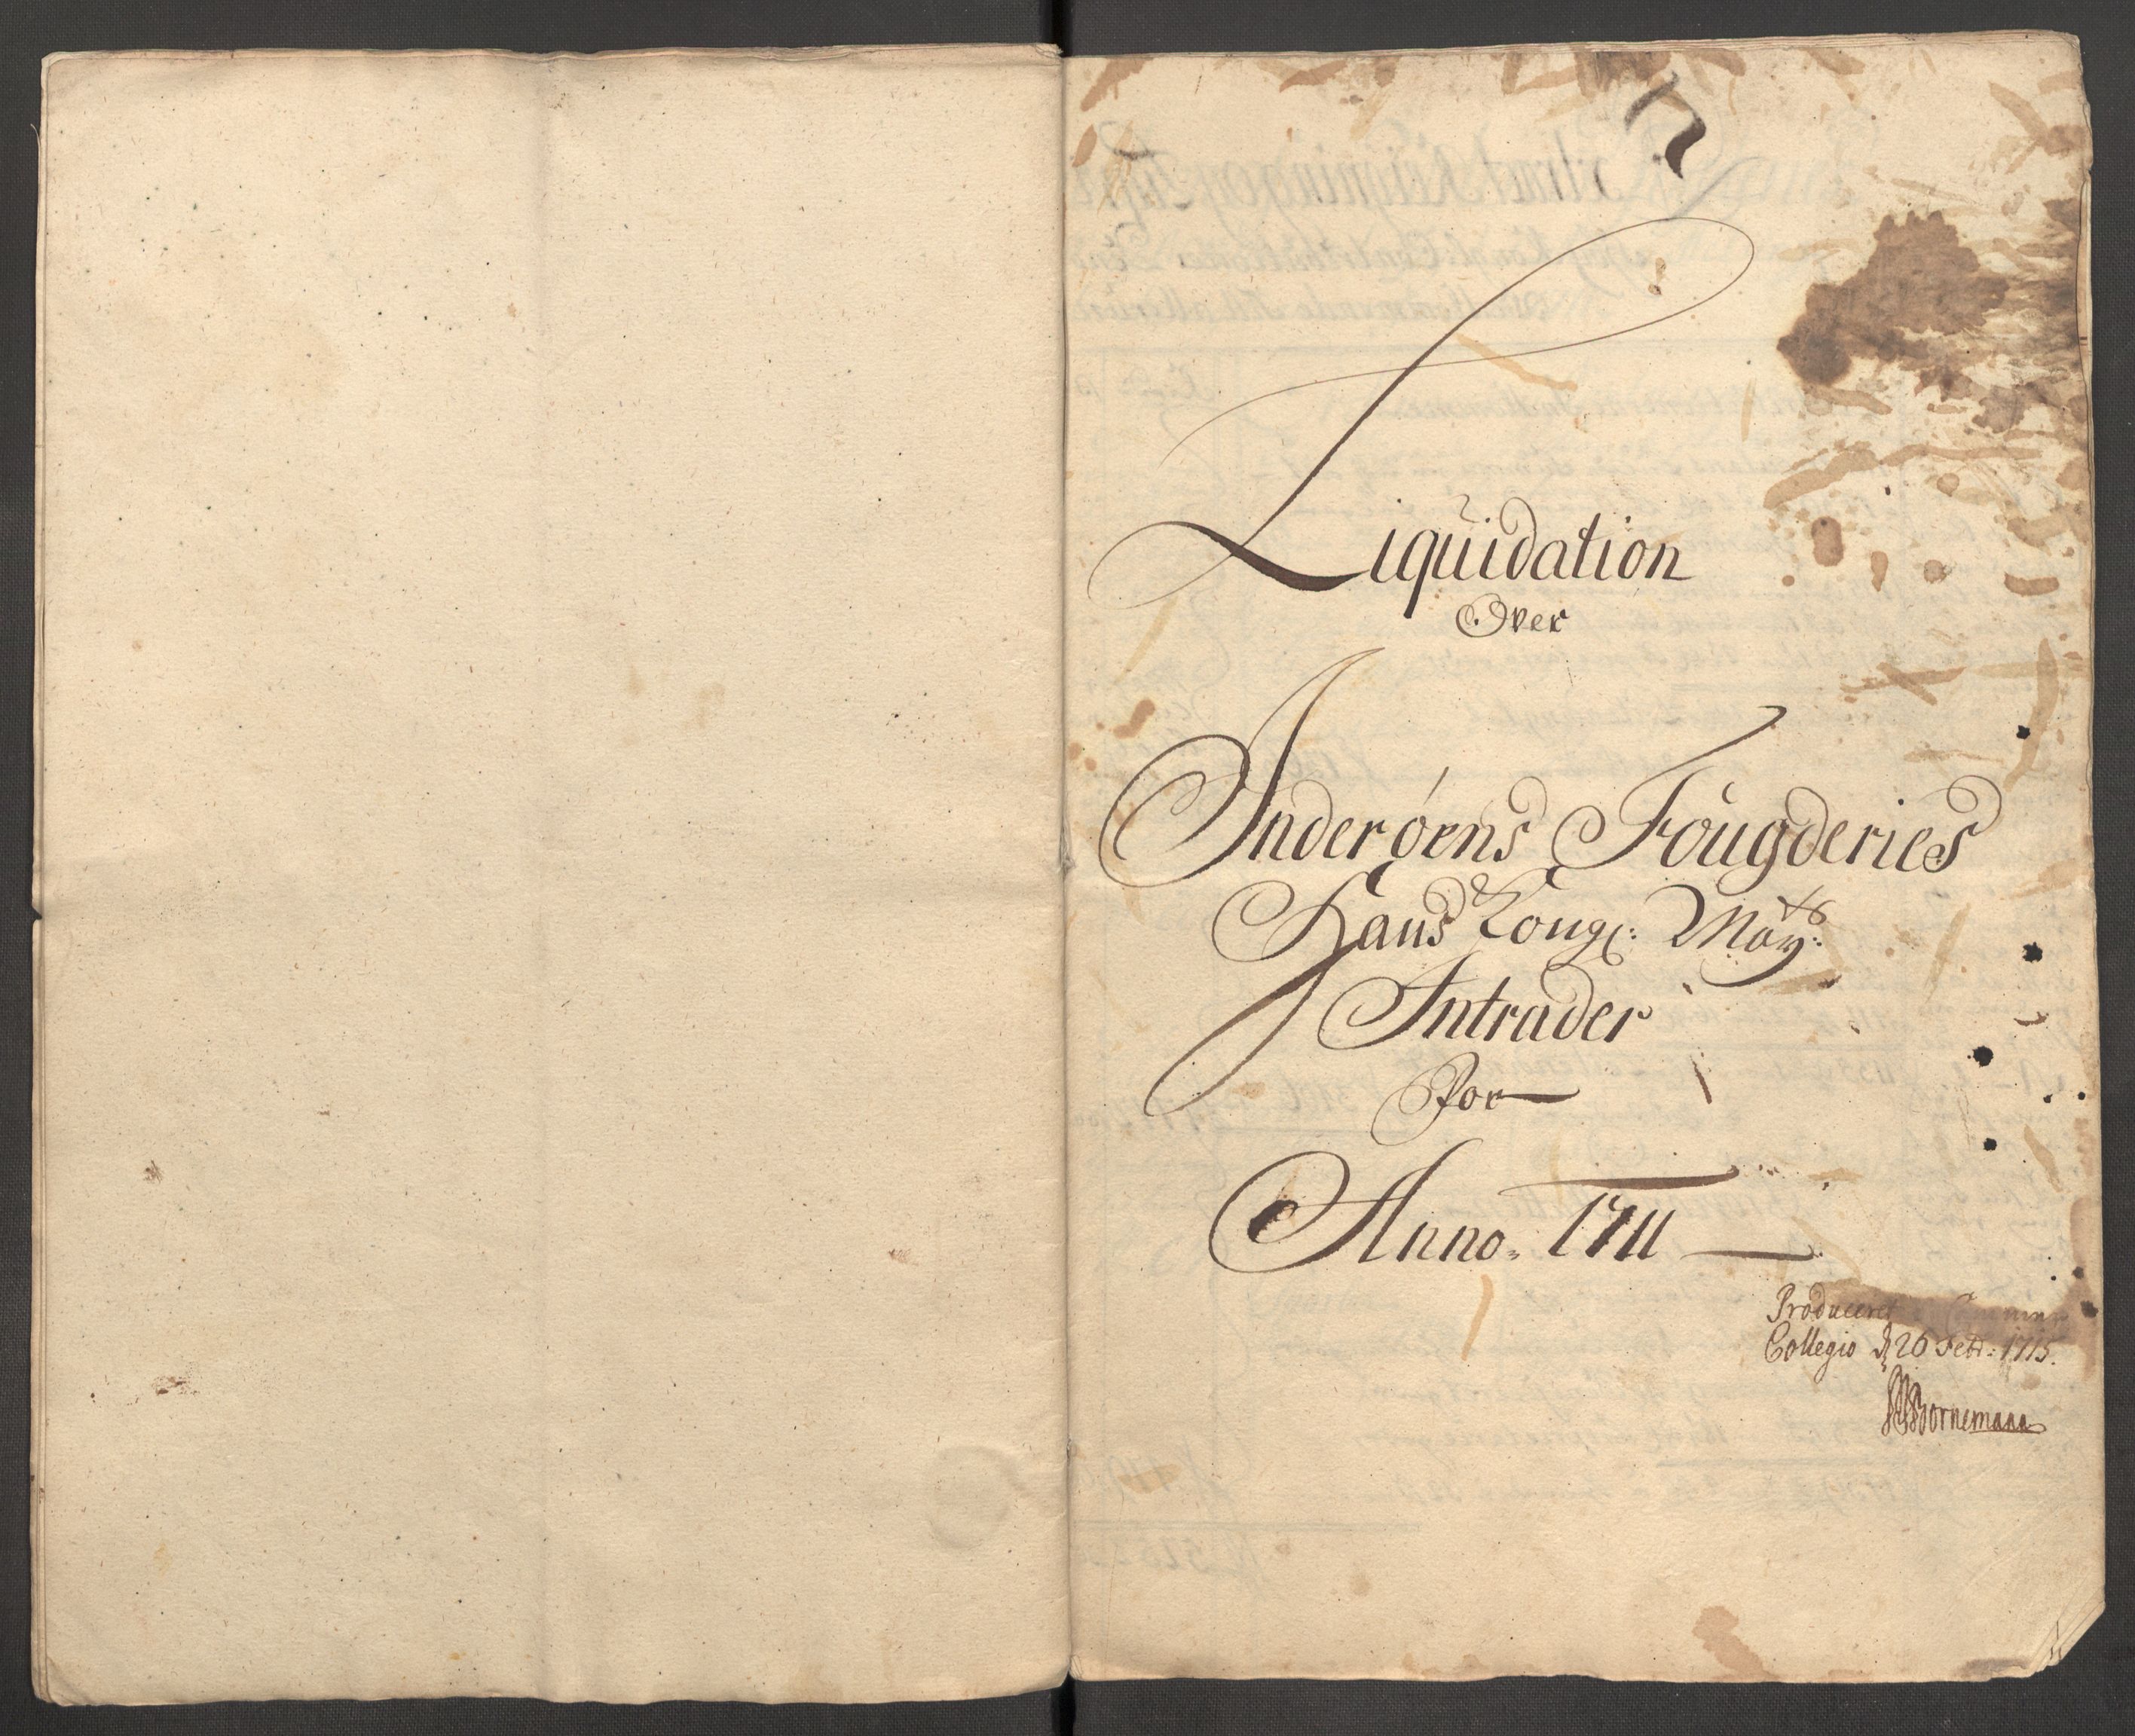 Liquidation
Over
Inderøens Fougderies
Hans Kongl: Mayts:
Intrader
For
Anno. 1711
Produceret
Collegio d 26 Febr: 1715.
Bornemann